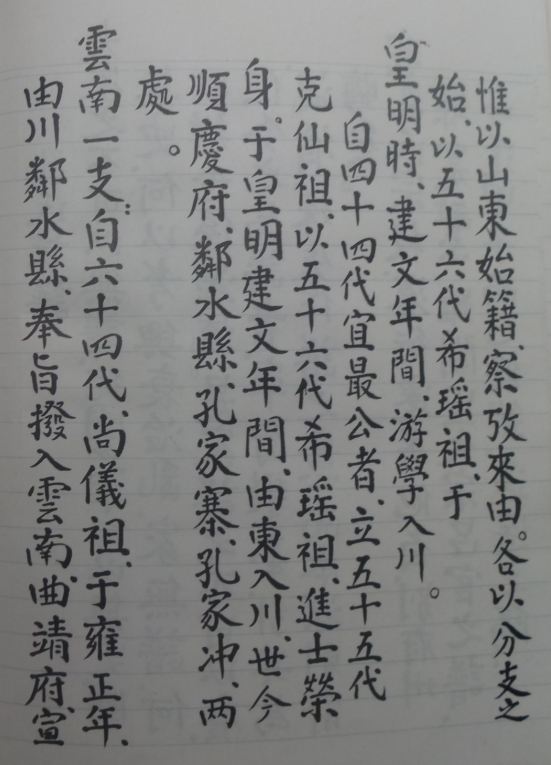 惟以山東始籍、察攷來由。各以分支之
始、以五十六代希瑶祖、于
皇明時、建文年間、游學入川。
自四十四代宜最公者、立五十五代
克仙祖、以五十六代希瑶祖、進士榮
身。于皇明建文年間、由東入川、世今
順慶府、鄰水縣、孔家寨、孔家冲、两
處。
雲南一支：自六十四代、尚儀祖、于雍正年、
由川鄰水縣、奉旨撥入雲南、曲靖府、宣